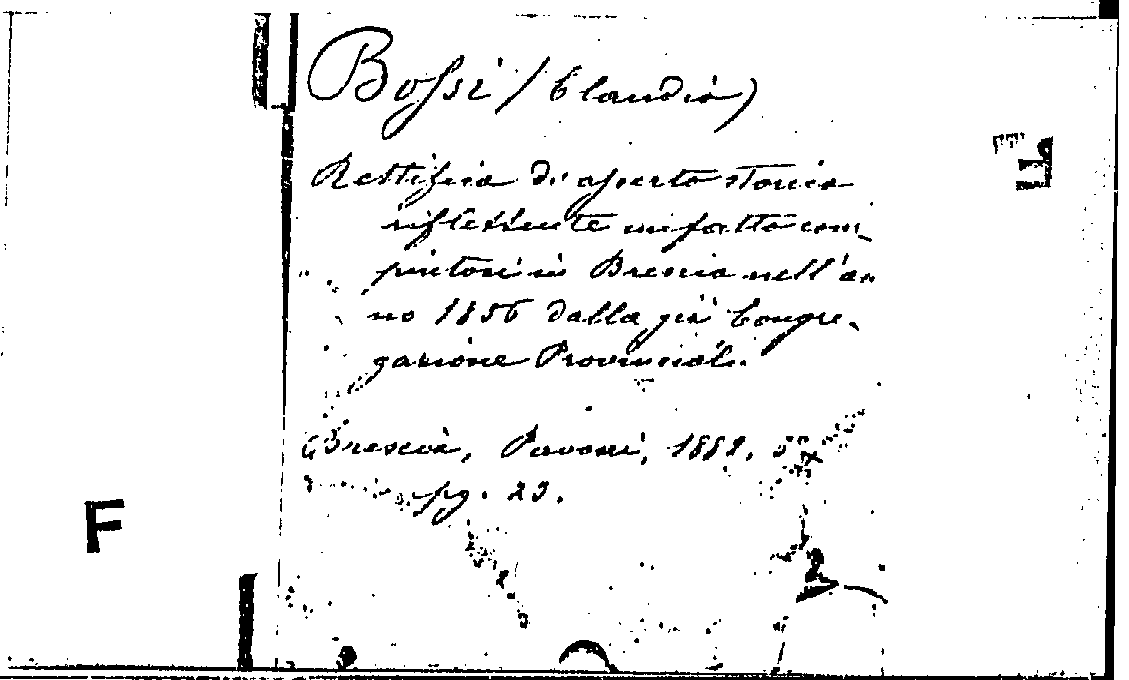 Bossi (Claudio)
Rettifica di asserto storico
riflettente un fatto com-
piutosi in Brescia nell'an-
no 1856 dalla già Congre-
gazione Provinciale.
Brescia, Pavoni, 1882, 8°
pg. 23.
F
F
2